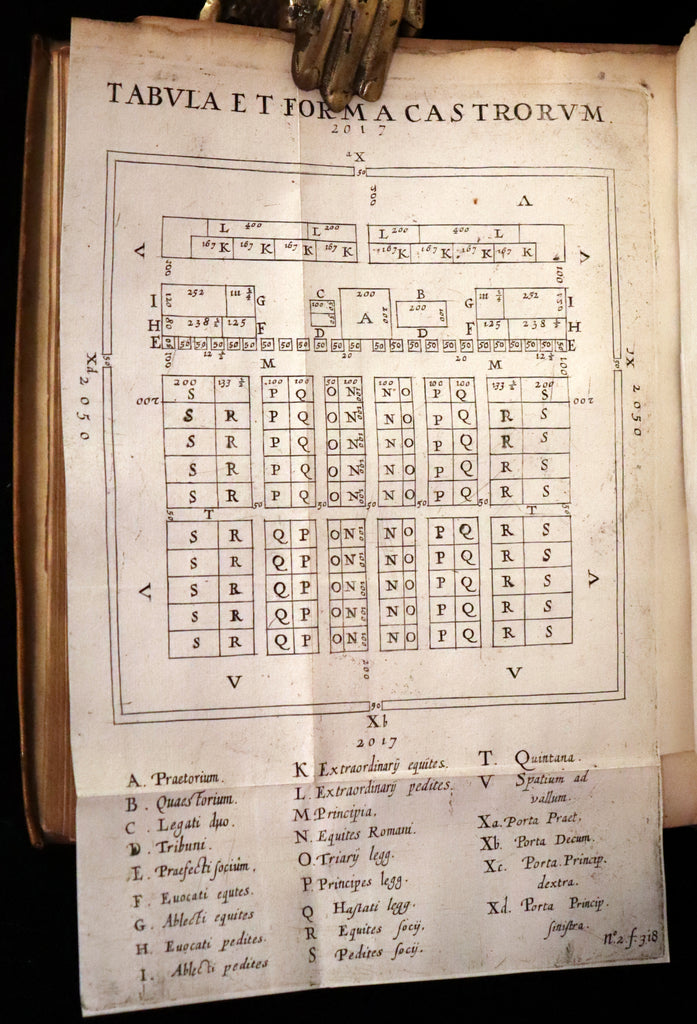 TABVLA ET FORMA CASTRORVM.
2017
X
50
700
V
L 400 L 200 L 200 400 L
167 K 167 K 167 K 167 K 167 K 167 K 167 K 167 K
V V
100 100
I 252 111 ¼ G C 200 B G 111 ¼ 252 I
120 100 A 200 200 100
H 80 238 ½ 125 F D D F 125 238 ½ H
E 50 50 50 50 50 50 50 50 50 50 50 50 50 50 50 50 50 50 50 50 50 E
100 12 ½ 20 20 12 ½ 100
M M
Xd 2050 50 50 2050
200 133 ⅓ 100 100 50 100 100 100 133 ⅓ 200
200 S P Q O N N O P Q S 200
S R P Q O N N O P Q R S
S R P Q O N N O P Q R S
S R P Q O N N O P Q R S
S R P Q O N N O P Q R S
50 50 50 50 50
50 T T 50
S R Q P O N N O P Q R S
S R Q P O N N O P Q R S
S R Q P O N N O P Q R S
S R Q P O N N O P Q R S
S R Q P O N N O P Q R S
V V
200
V V
50
Xb
2017
A. Praetorium.
B. Quaestorium.
C. Legati duo.
D. Tribuni.
E. Praefecti socium.
F. Euocati equtes.
G. Ablecti equites
H. Euocati pedites.
I. Ablecti pedites
K Extraordinarij equites.
L. Extraordinarij pedites.
M Principia,
N. Equites Romani.
O. Triarij legg.
P. Principes legg.
Q Hastati legg.
R Equites socij.
S Pedites socij.
T. Quintana.
V Spatium ad
vallum.
Xa. Porta Praet.
Xb. Porta Decum.
Xc. Porta Princip.
dextra.
Xd. Porta Princip.
sinistra.
nº 2. f. 318